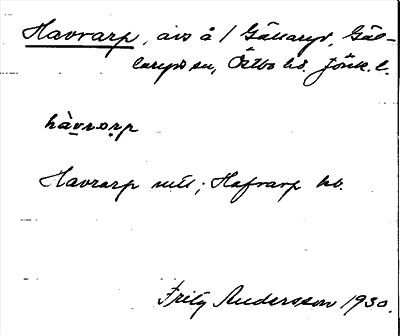 Havrarp, avs å 1 Gällaryd, Gäl-
laryds sn, Östbo hd. Jönk. l.
hàvrarp
Havrarp mtl; Hafrarp kb.
Fritz Andersson 1930.